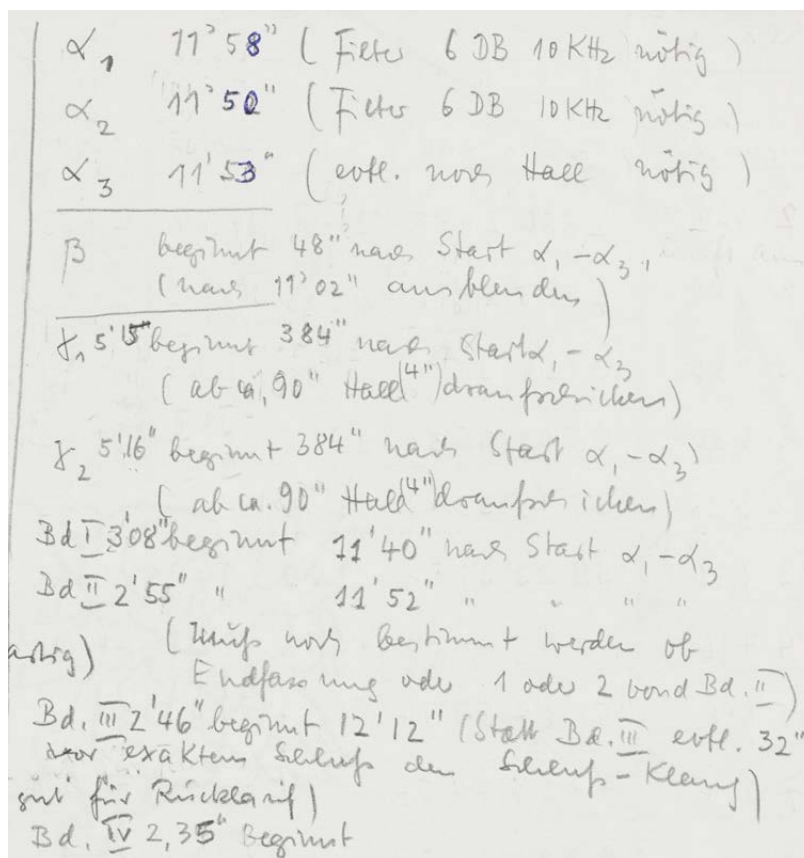 α₁ 11'58" (Filter 6 DB 10 KHz nötig)
α₂ 11'50" (Filter 6 DB 10 KHz nötig)
α₃ 11'53" (evtl. noch Hall nötig)
β beginnt 48" nach Start α₁-α₃,
(nach 11'02" ausblenden)
γ₁ 5'15" beginnt 384" nach Start α₁-α₃
(ab ca. 90" Hall (4") draufschicken)
γ₂ 5'16" beginnt 384" nach Start α₁-α₃)
(ab ca. 90" Hall (4") draufschicken)
Bd I 3'08" beginnt 11'40" nach Start α₁-α₃
Bd II 2'55" " 11'52" " " " "
artig) (Muß noch bestimmt werden ob
Endfassung oder 1 oder 2 Bd. II)
Bd. III 2'46" beginnt 12'12" (Statt Bd. III evtl. 32"
vor exaktem Schluß den Schluß-Klang)
gut für Rücklauf)
Bd. IV 2,35" Beginnt